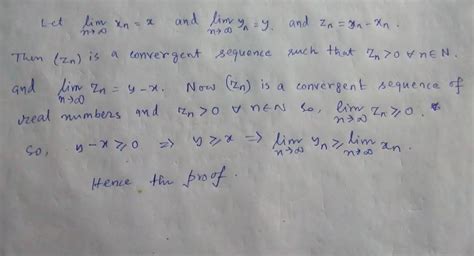 Let lim n→∞ xn = x and lim n→∞ yn = y. and zn = yn - xn.
Then (zn) is a convergent sequence such that zn > 0 ∀ n∈N.
and lim n→∞ zn = y - x. Now (zn) is a convergent sequence of
real numbers and zn > 0 ∀ n∈N so, lim n→∞ zn ⩾ 0.
So, y - x ⩾ 0 ⇒ y ⩾ x ⇒ lim n→∞ yn ⩾ lim n→∞ xn.
Hence the proof.